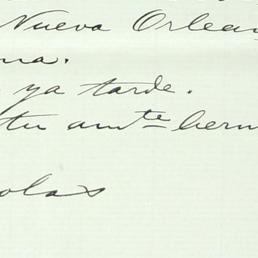 Nueva Orlean
na.
ya tarde.
tu amte herm
olas